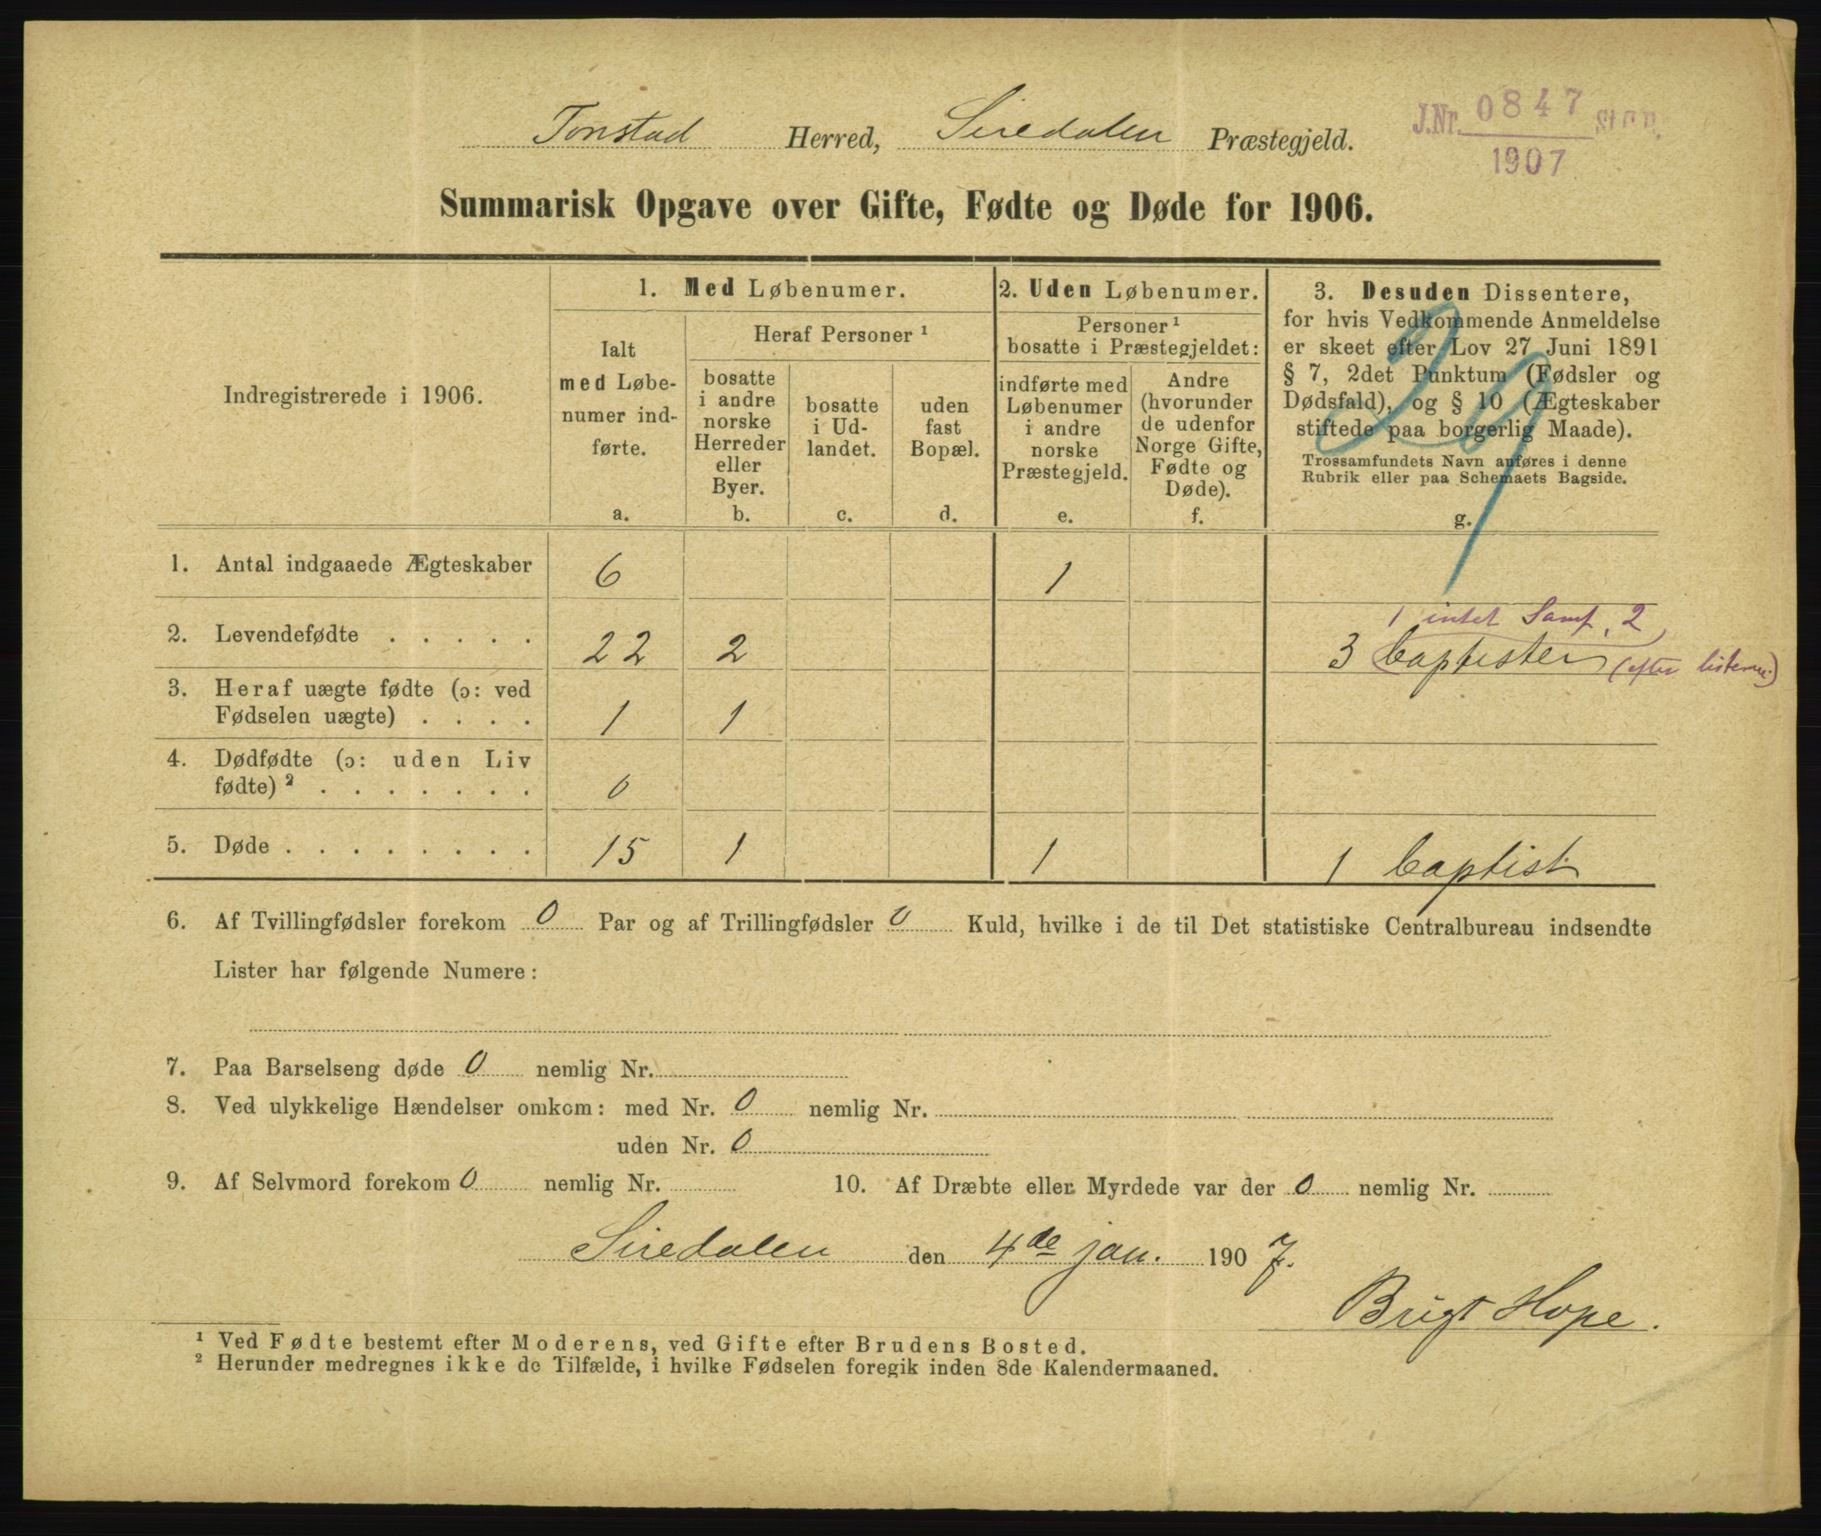 Tonstad Herred, Siredalen Præstegjeld.
J.Nr. 0847 St.C.B.
1907
Summarisk Opgave over Gifte, Fødte og Døde for 1906.
Indregistrerede i 1906.
1. Med Løbenumer.
Ialt
med Løbe-
numer ind-
førte.
a.
Heraf Personer ¹
bosatte
i andre
norske
Herreder
eller
Byer.
b.
bosatte
i Ud-
landet.
c.
uden
fast
Bopæl.
d.
2. Uden Løbenumer.
Personer ¹
bosatte i Præstegjeldet:
indførte med
Løbenumer
i andre
norske
Præstegjeld.
e.
Andre
(hvorunder
de udenfor
Norge Gifte,
Fødte og
Døde).
f.
3. Desuden Dissentere,
for hvis Vedkommende Anmeldelse
er skeet efter Lov 27 Juni 1891
§ 7, 2det Punktum (Fødsler og
Dødsfald), og § 10 (Ægteskaber
stiftede paa borgerlig Maade).
Trossamfundets Navn anføres i denne
Rubrik eller paa Schemaets Bagside.
g.
1. Antal indgaaede Ægteskaber 6 1
1 intet Samf, 2
2. Levendefødte . . . . . 22 2 3 baptister (efter listerne)
3. Heraf uægte fødte (ɔ: ved
Fødselen uægte) . . . . 1 1
4. Dødfødte (ɔ: uden Liv
fødte) ² . . . . . . . 0
5. Døde . . . . . . . . 15 1 1 1 baptist
6. Af Tvillingfødsler forekom 0 Par og af Trillingfødsler 0 Kuld, hvilke i de til Det statistiske Centralbureau indsendte
Lister har følgende Numere:
7. Paa Barselseng døde 0 nemlig Nr.
8. Ved ulykkelige Hændelser omkom: med Nr. 0 nemlig Nr.
uden Nr. 0
9. Af Selvmord forekom 0 nemlig Nr. 10. Af Dræbte eller Myrdede var der 0 nemlig Nr.
Siredalen den 4de jan. 1907.
Brigt Hope.
¹ Ved Fødte bestemt efter Moderens, ved Gifte efter Brudens Bosted.
² Herunder medregnes ikke de Tilfælde, i hvilke Fødselen foregik inden 8de Kalendermaaned.